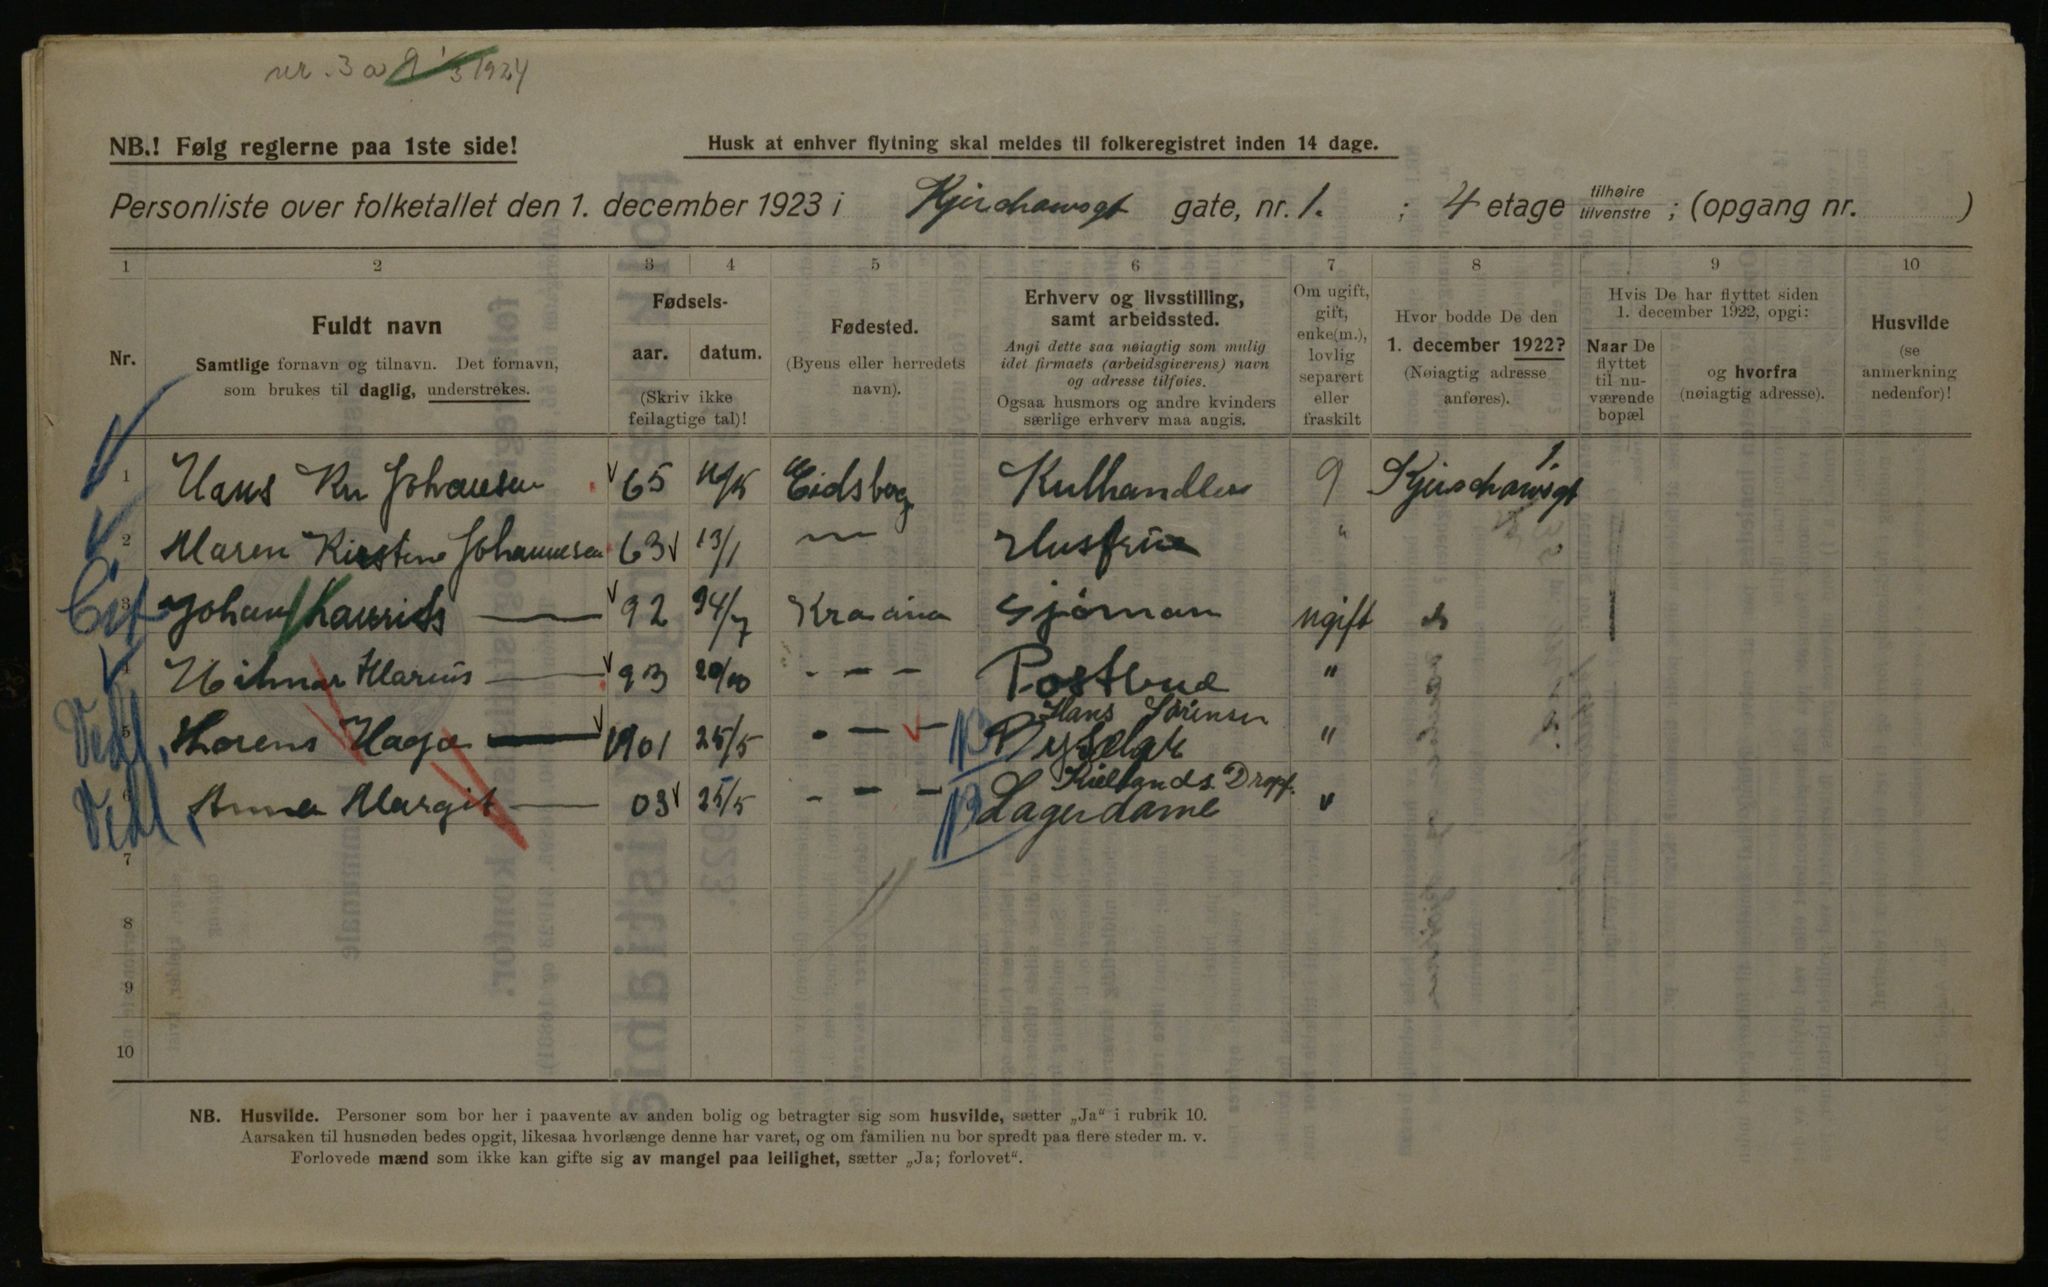 nr. 3 1924
NB.! Følg reglerne paa 1ste side!
Husk at enhver flytning skal meldes til folkeregistret inden 14 dage.
Personliste over folketallet den 1. december 1923 i Kjerschowsgt gate, nr. 1. ; 4 etage tilhøire tilvenstre ; (opgang nr. )
1 2 3 4 5 6 7 8 9 10
Nr.
Fuldt navn
Samtlige fornavn og tilnavn. Det fornavn,
som brukes til daglig, understrekes.
Fødsels-
aar. datum.
(Skriv ikke
feilagtige tal)!
Fødested.
(Byens eller herredets
navn).
Erhverv og livsstilling,
samt arbeidssted.
Angi dette saa nøiagtig som mulig
idet firmaets (arbeidsgiverens) navn
og adresse tilføies.
Ogsaa husmors og andre kvinders
særlige erhverv maa angis.
Om ugift,
gift,
enke(m.),
lovlig
separert
eller
fraskilt
Hvor bodde De den
1. december 1922?
(Nøiagtig adresse
anføres).
Hvis De har flyttet siden
1. december 1922, opgi:
Naar De
flyttet
til nu-
værende
bopæl
og hvorfra
(nøiagtig adresse).
Husvilde
(se
anmerkning
nedenfor)!
1 Hans Kr Johansen 65 Eidsberg Kulhandler g Kjerschowsgt 1
2 Maren Kirstine Johannesen 63 13/1 — Husfrue "
3 Johan Laurids — 92 24/7 Krania Sjöman ugift do
4 Hilmar Marius — 93 20/10 - - - Postbud "
Hans Sörensen
5 Thorens Haga — 1901 25/5 - - - "
Kiellands Dropf.
6 Anna Margit — 03 25/5 - - - Lagerdame "
7
8
9
10
NB. Husvilde. Personer som bor her i paavente av anden bolig og betragter sig som husvilde, sætter „Ja“ i rubrik 10.
Aarsaken til husnøden bedes opgit, likesaa hvorlænge denne har varet, og om familien nu bor spredt paa flere steder m. v.
Forlovede mænd som ikke kan gifte sig av mangel paa leilighet, sætter „Ja; forlovet“.